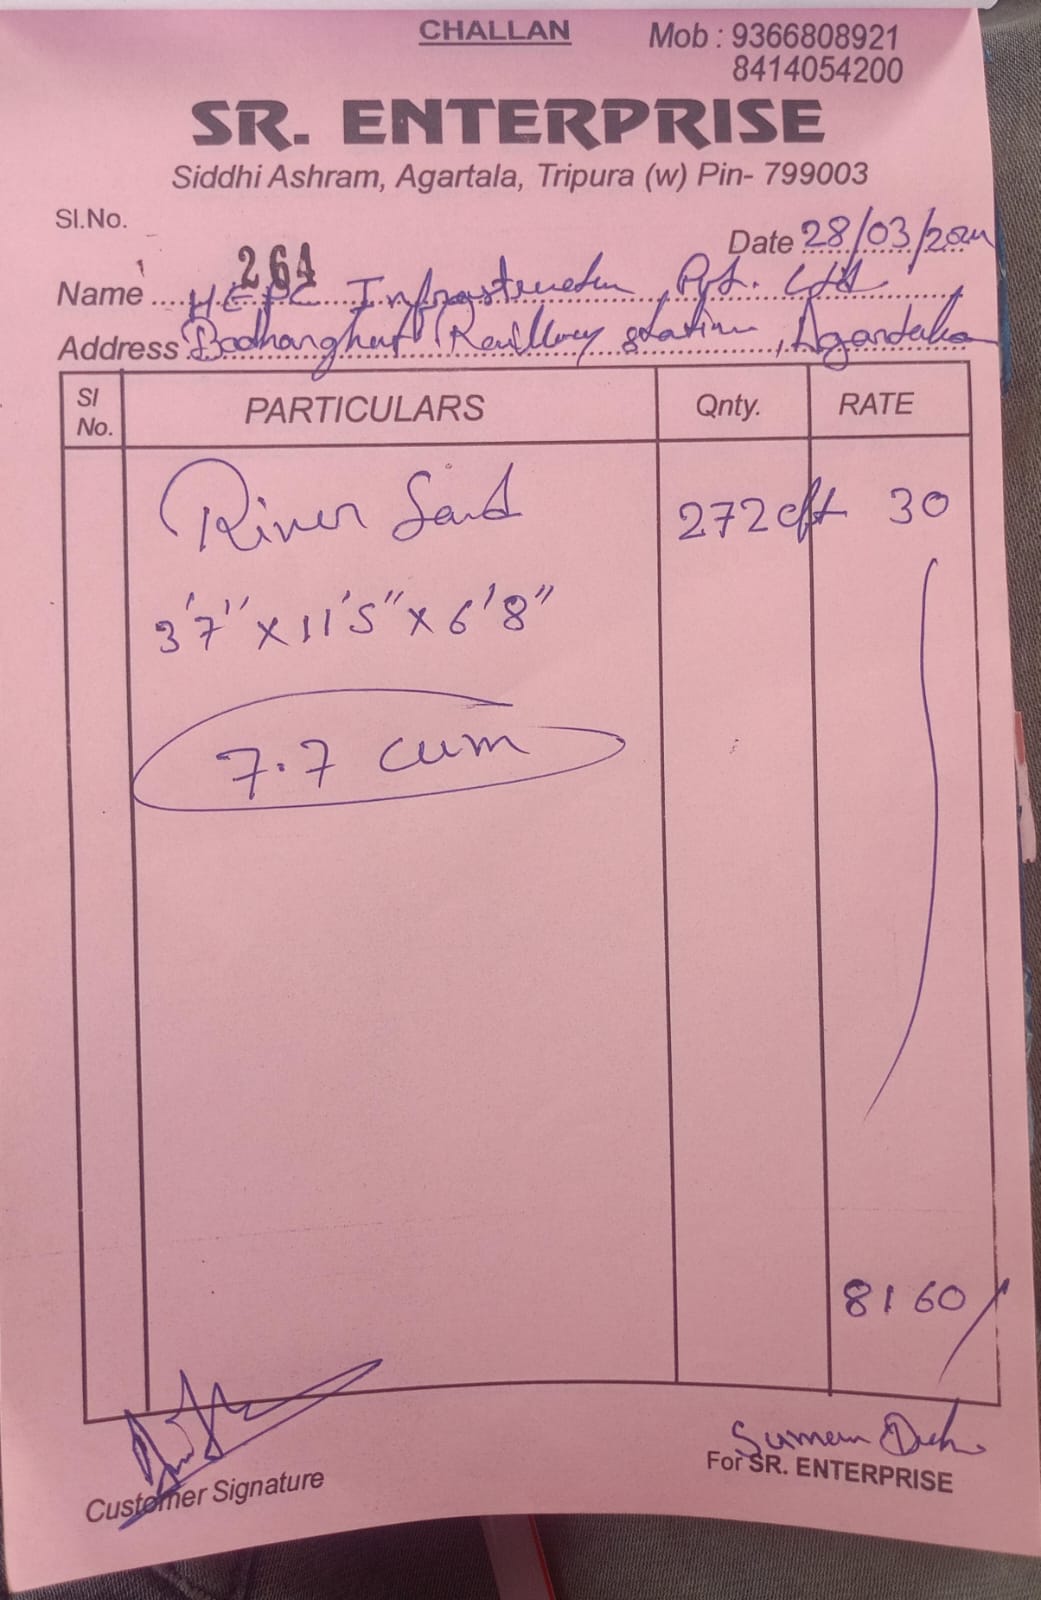 CHALLAN
Mob : 9366808921
8414054200
SR. ENTERPRISE
Siddhi Ashram, Agartala, Tripura (w) Pin- 799003
Sl.No. 264
Date 28/03/
Name HEPC Infrastructure Pvt. Ltd
Address Badharghat Railway station, Agartala
Sl No. PARTICULARS Qnty. RATE
River Sand 272 cft 30
3'7" x 11'5" x 6'8"
7.7 cum
8160/
Suman
Customer Signature
For SR. ENTERPRISE